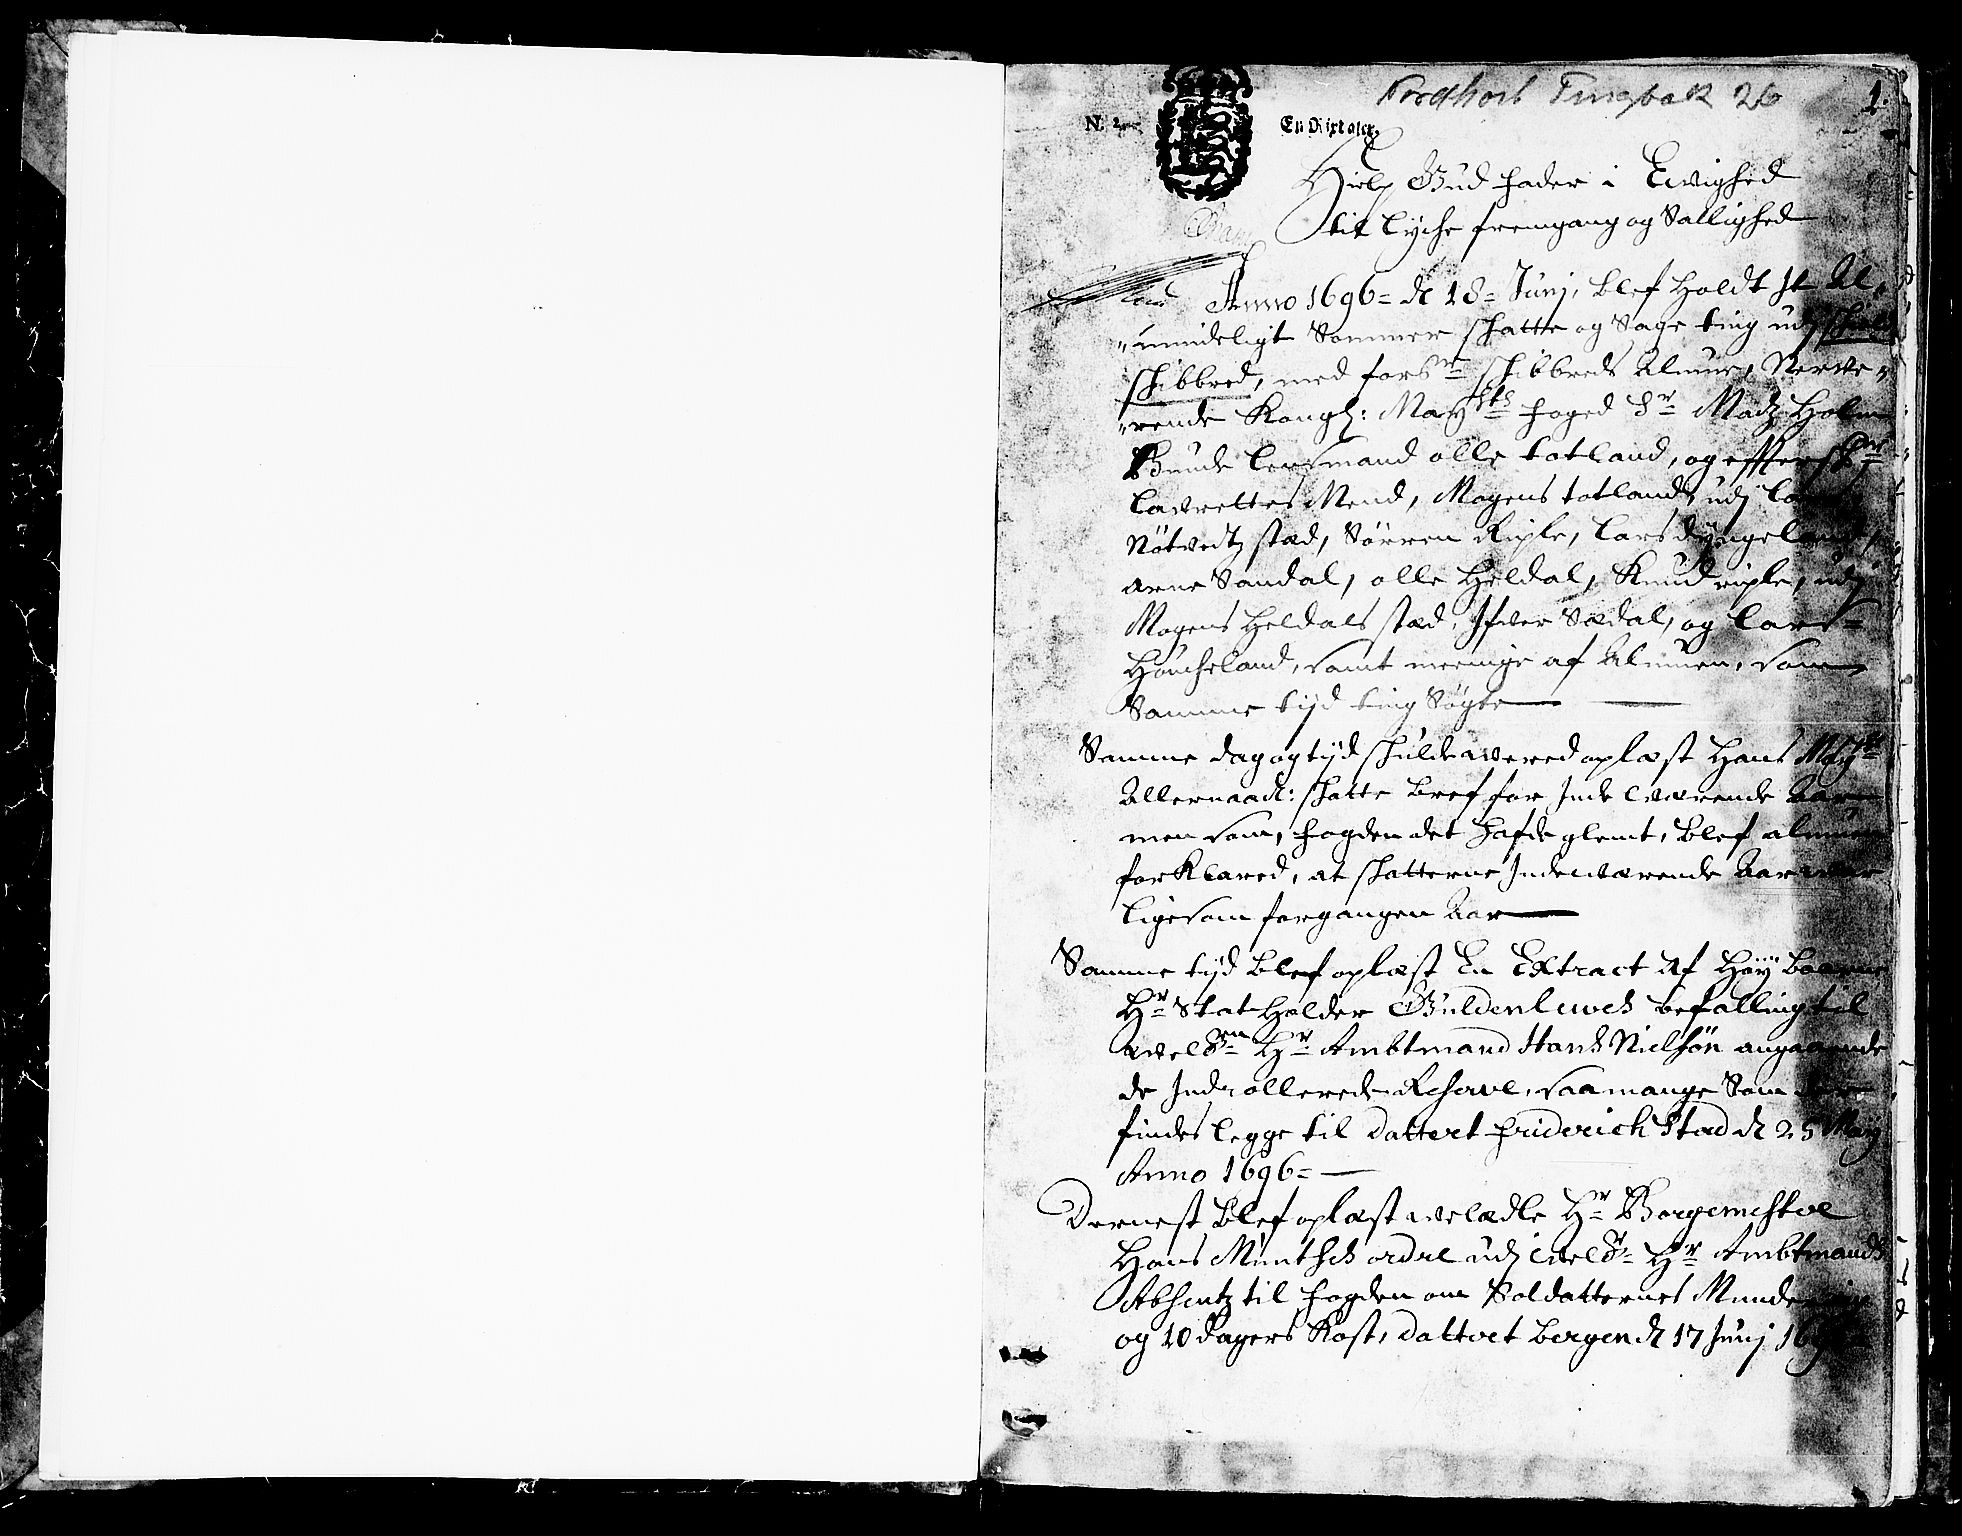 Nordhorl Tingbok 26
1.
N. 2
En Rixdaler.
Hielp Gud fader i Ewighed
til lyche fremgang og Sallighed
Anno 1696 = d 18 = Junj, blef holdt it Al,
,,mindeligt Sommer schatte og Sage ting udj
schibbred, med forbte schibbreds Almue, Nerwe,,
,,rende Kongl: Maysts foged Sr Madz Holm
Bunde lensmand olle totland, og effterschr
lawrettes Mend, Mogens totland, udj
Nötvedtz stæd, Sörren Riple, lars dyngeland,
arne Sandal, olle Heldal, Knud riple, udj
Mogens Heldals stæd, Ifwer Sædal, og lars
Houcheland, samt meenige af Almuen, som
Samme tijd ting Sögte
Samme dag og tijd schulde wered oplæst Hans Maysts
Allernaad: schatte bref for Inde werende Aar
men som, fogden det hafde glemt, blef almuen
forklared, at schatterne Indewærende Aar war
ligesom forgangen Aar
Samme tijd blef oplæst En Extract Af Höy baarne
Hr Stat-Holder Güldenlewes befalling til
welben Hr Ambtmand Hans Nielsön angaaende
de Indrollerede Reserve, saamange Som der
findes legge til dattert friderich Stad d 25 May
Anno 1696 =
Dernest blef oplæst welædle Hr Borgemester
Hans Munthes ordre udj welbr Hr Ambtmands
Absentz til fogden om Soldatternes Mundering
og 10 dagers Kost, dattert bergen d 17 Junj 1696